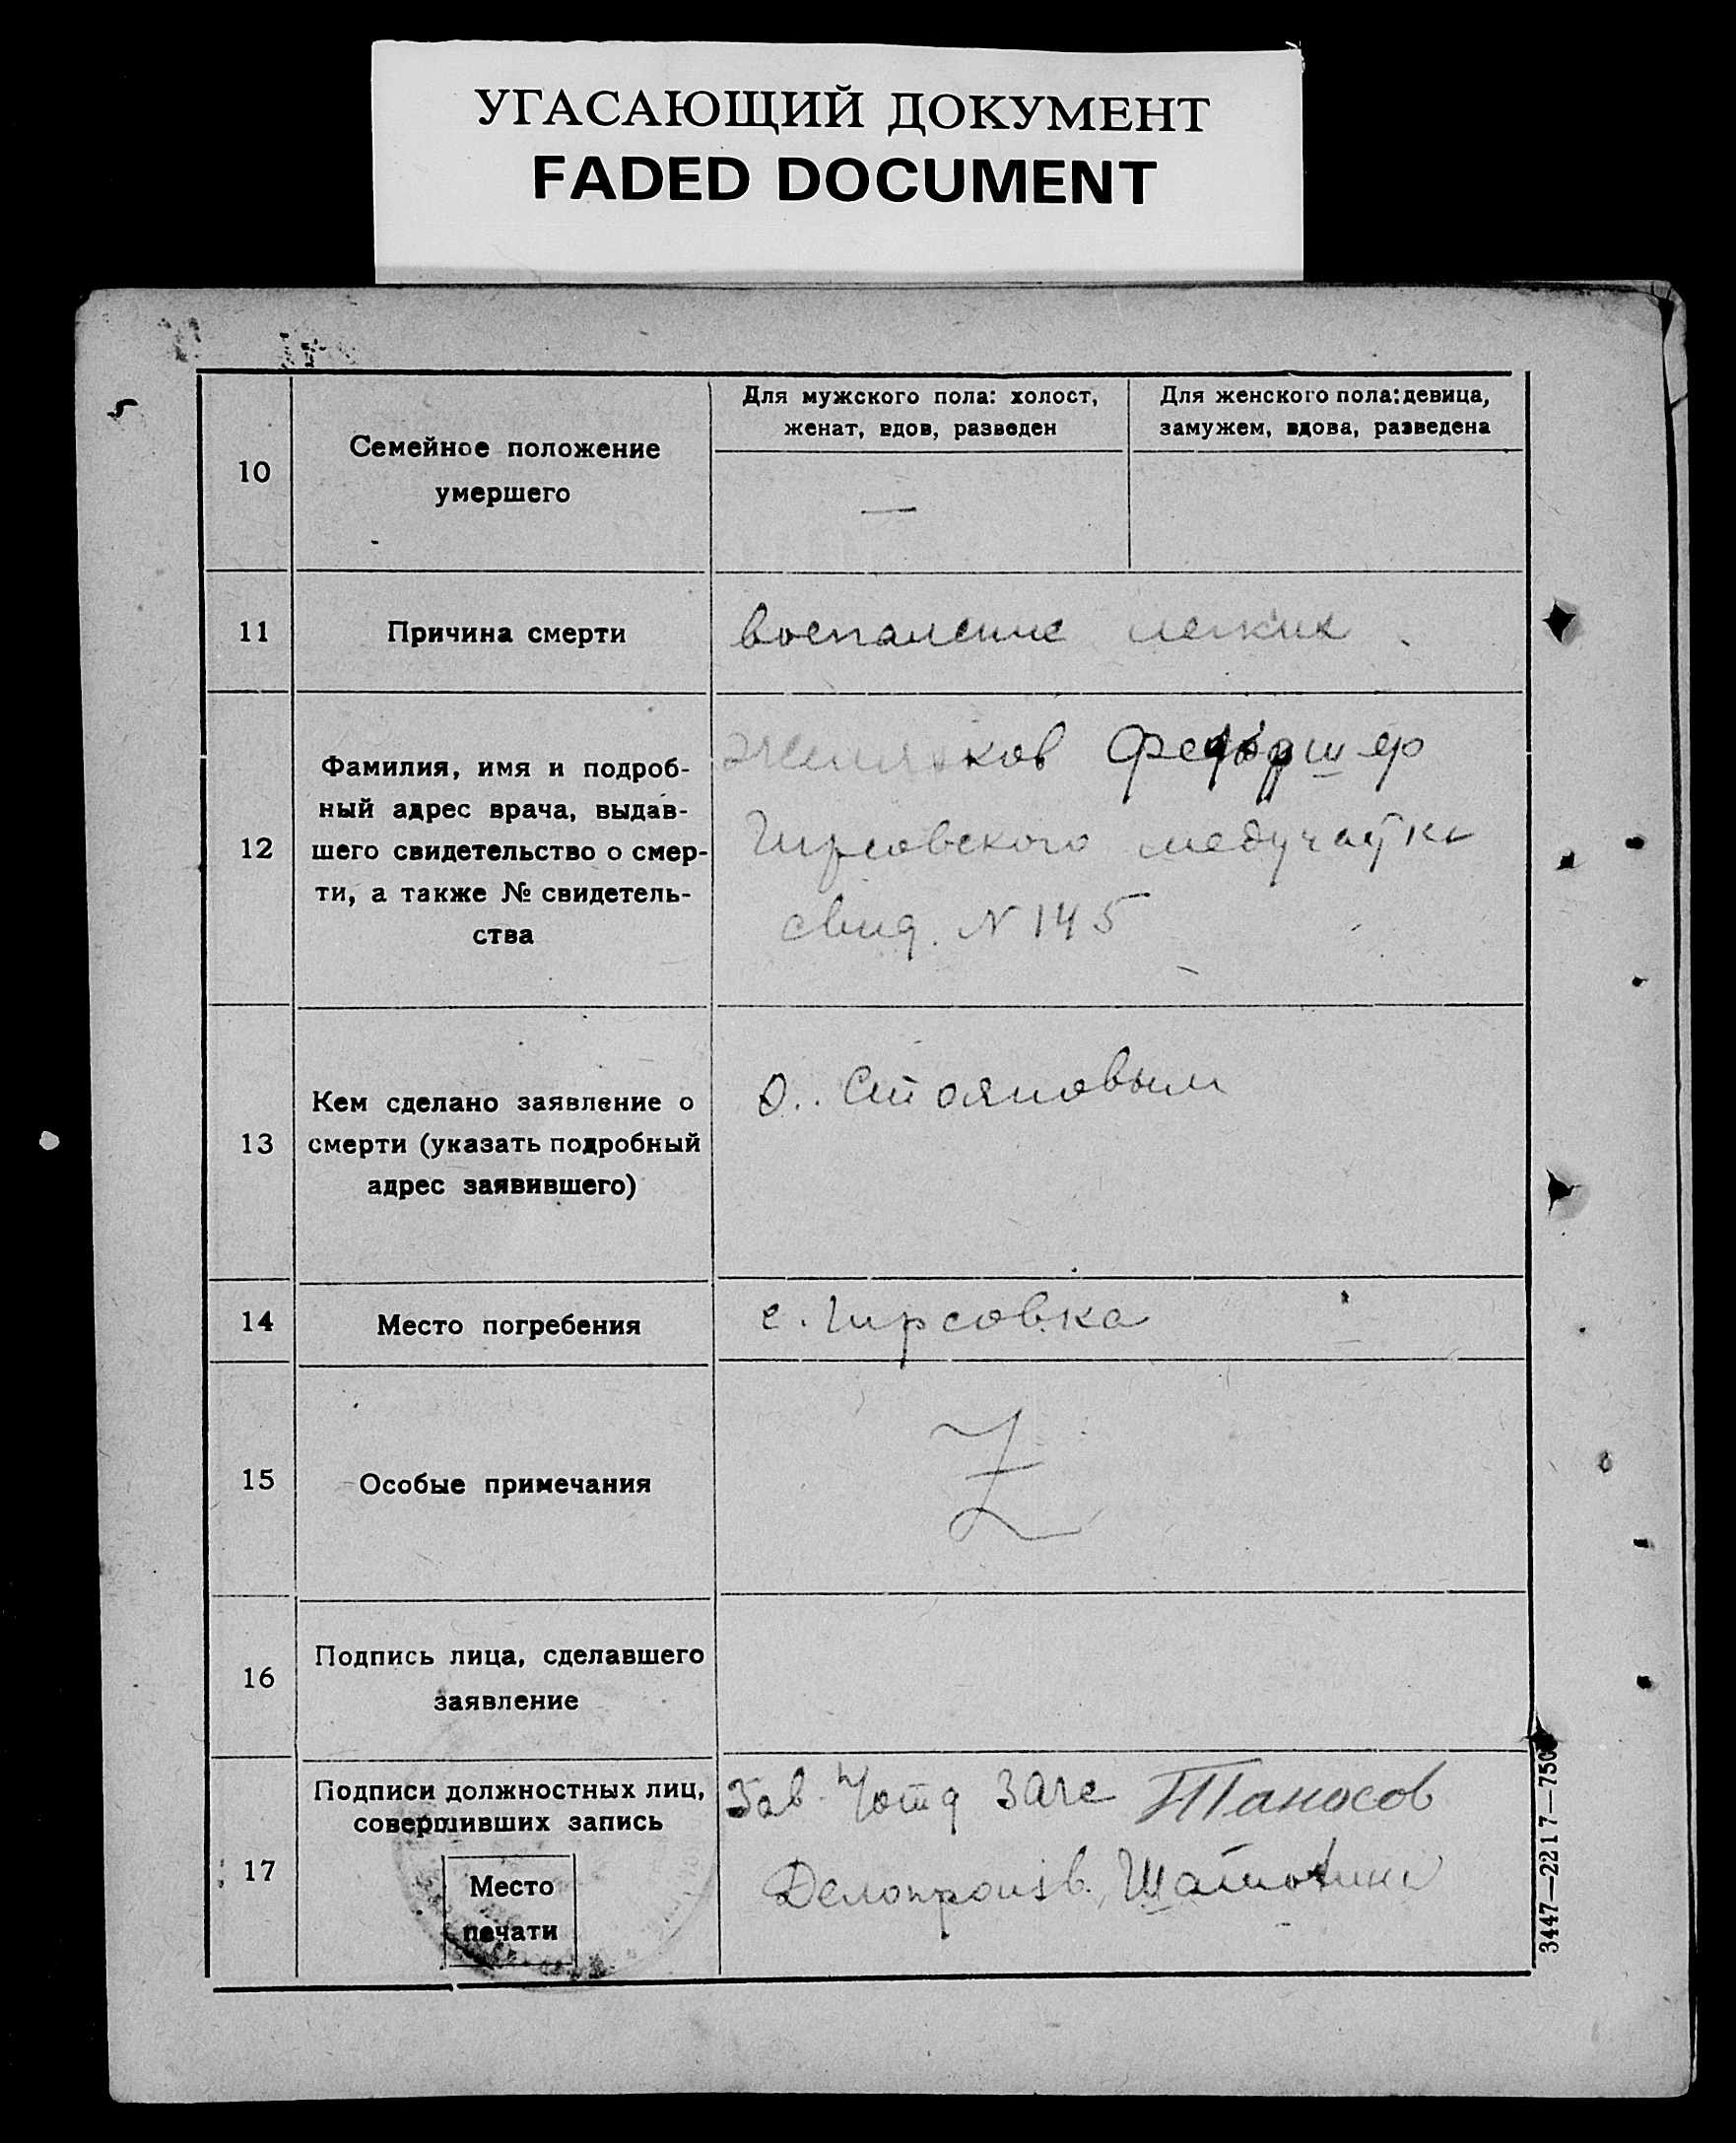 УГАСАЮЩИЙ ДОКУМЕНТ
FADED DOCUMENT
10
Семейное положение
умершего
Для мужского пола: холост,
женат, вдов, разведен
Для женского пола: девица,
замужем, вдова, разведена
—
11
Причина смерти
воспаление легких
12
Фамилия, имя и подроб-
ный адрес врача, выдав-
шего свидетельство о смер-
ти, а также № свидетель-
ства
Гирсовского медучастка
свид. N 145
13
Кем сделано заявление о
смерти (указать подробный
адрес заявившего)
Стояновым
14
Место погребения
с. Гирсовка
15
Особые примечания
Z
16
Подпись лица, сделавшего
заявление
17
Подписи должностных лиц,
совершивших запись
Место
печати
Зав. Загс Танасов
Делопроизв.
3447—2217—750